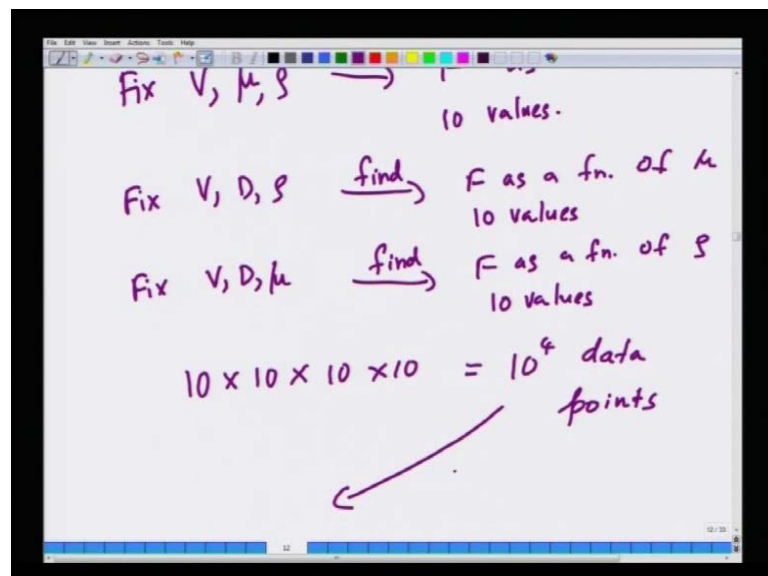 File Edit View Insert Actions Tools Help
Fix V, μ, ρ → F as
10 values.
Fix V, D, ρ find → F as a fn. of μ
10 values
Fix V, D, μ find → F as a fn. of ρ
10 values
10 × 10 × 10 × 10 = 10⁴ data
points
12/33
12